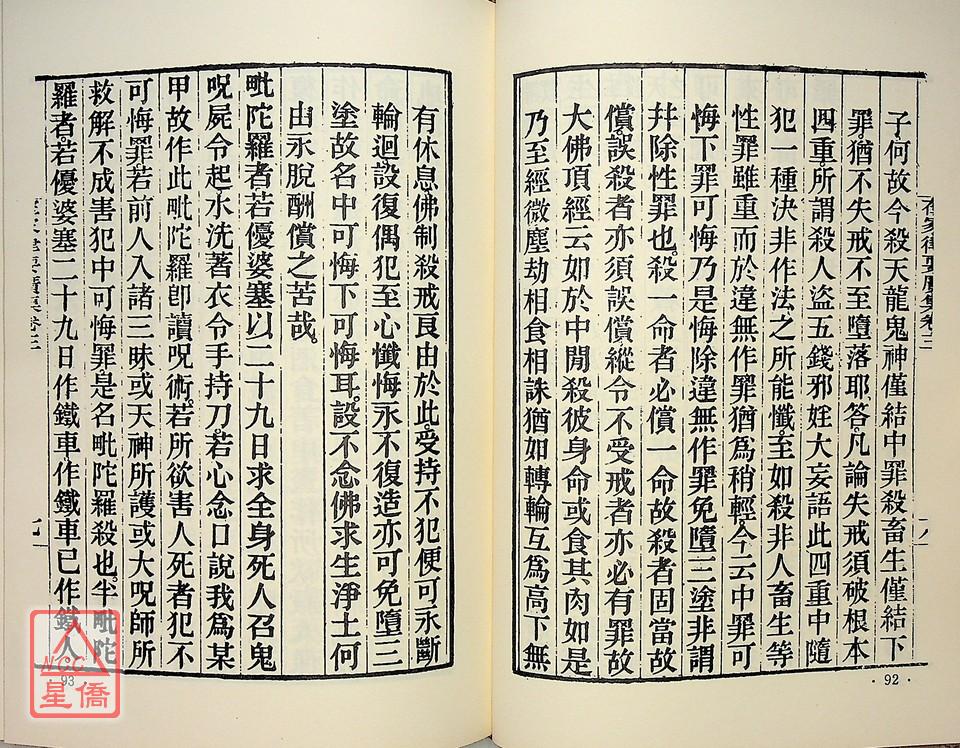 子何故今殺天龍鬼神僅結中罪殺畜生僅結下
罪猶不失戒不至墮落耶答凡論失戒須破根本
四重所謂殺人盜五錢邪婬大妄語此四重中隨
犯一種決非作法之所能懺至如殺非人畜生等
性罪雖重而於違無作罪猶爲稍輕今云中罪可
悔下罪可悔乃是悔除違無作罪免墮三塗非謂
幷除性罪也殺一命者必償一命故殺者固當故
償誤殺者亦須誤償縱令不受戒者亦必有罪故
大佛頂經云如於中閒殺彼身命或食其肉如是
乃至經微塵劫相食相誅猶如轉輪互爲高下無
在家律要廣集卷三
十八
92
有休息佛制殺戒良由於此受持不犯便可永斷
輪迴設復偶犯至心懺悔永不復造亦可免墮三
塗故名中可悔下可悔耳設不念佛求生淨土何
由永脫酬償之苦哉
毗陀羅者若優婆塞以二十九日求全身死人召鬼
呪屍令起水洗著衣令手持刀若心念口說我爲某
甲故作此毗陀羅卽讀呪術若所欲害人死者犯不
可悔罪若前人入諸三昧或天神所護或大呪師所
救解不成害犯中可悔罪是名毗陀羅殺也半毗陀
羅者若優婆塞二十九日作鐵車作鐵車已作鐵人
在家律要廣集卷三
93
NCC
星僑